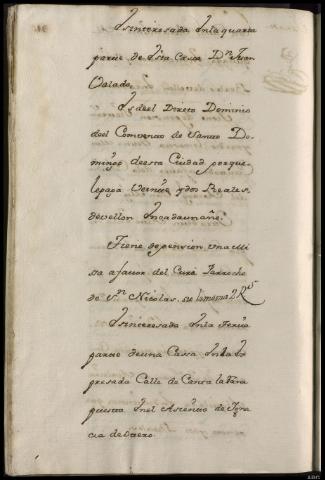 Isinteresada Inla quarta
parte de Ista Casa Dn Juan
Valado.
Is deel Direto Dominio
deel Combento de Santo Do-
mingo deesta Ciudad porque
lepaga Veinte ydos Reales
devellon Incadaunaño.
Tiene depension, una Mi
sa afauor del Cura Parrocho
de Sn Nicolas. su lismosna 2 Rs
Isinteresada Inla Terzia
parte deuna Cassa Inla Ix
presada Calle de Cansa la Tara
puesta Inel Ascenso de Igna
cia de Otero.